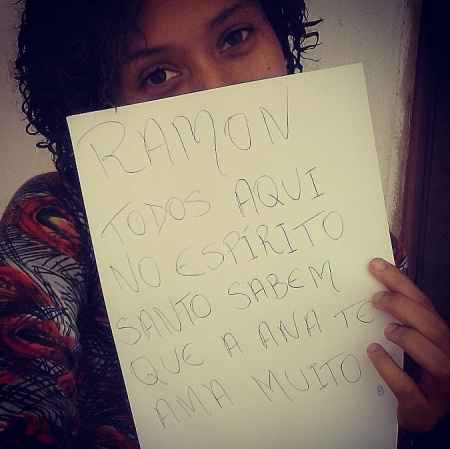 RAMON
TODOS AQUI
NO ESPÍRITO
SANTO SABEM
QUE A ANA TE
AMA MUITO